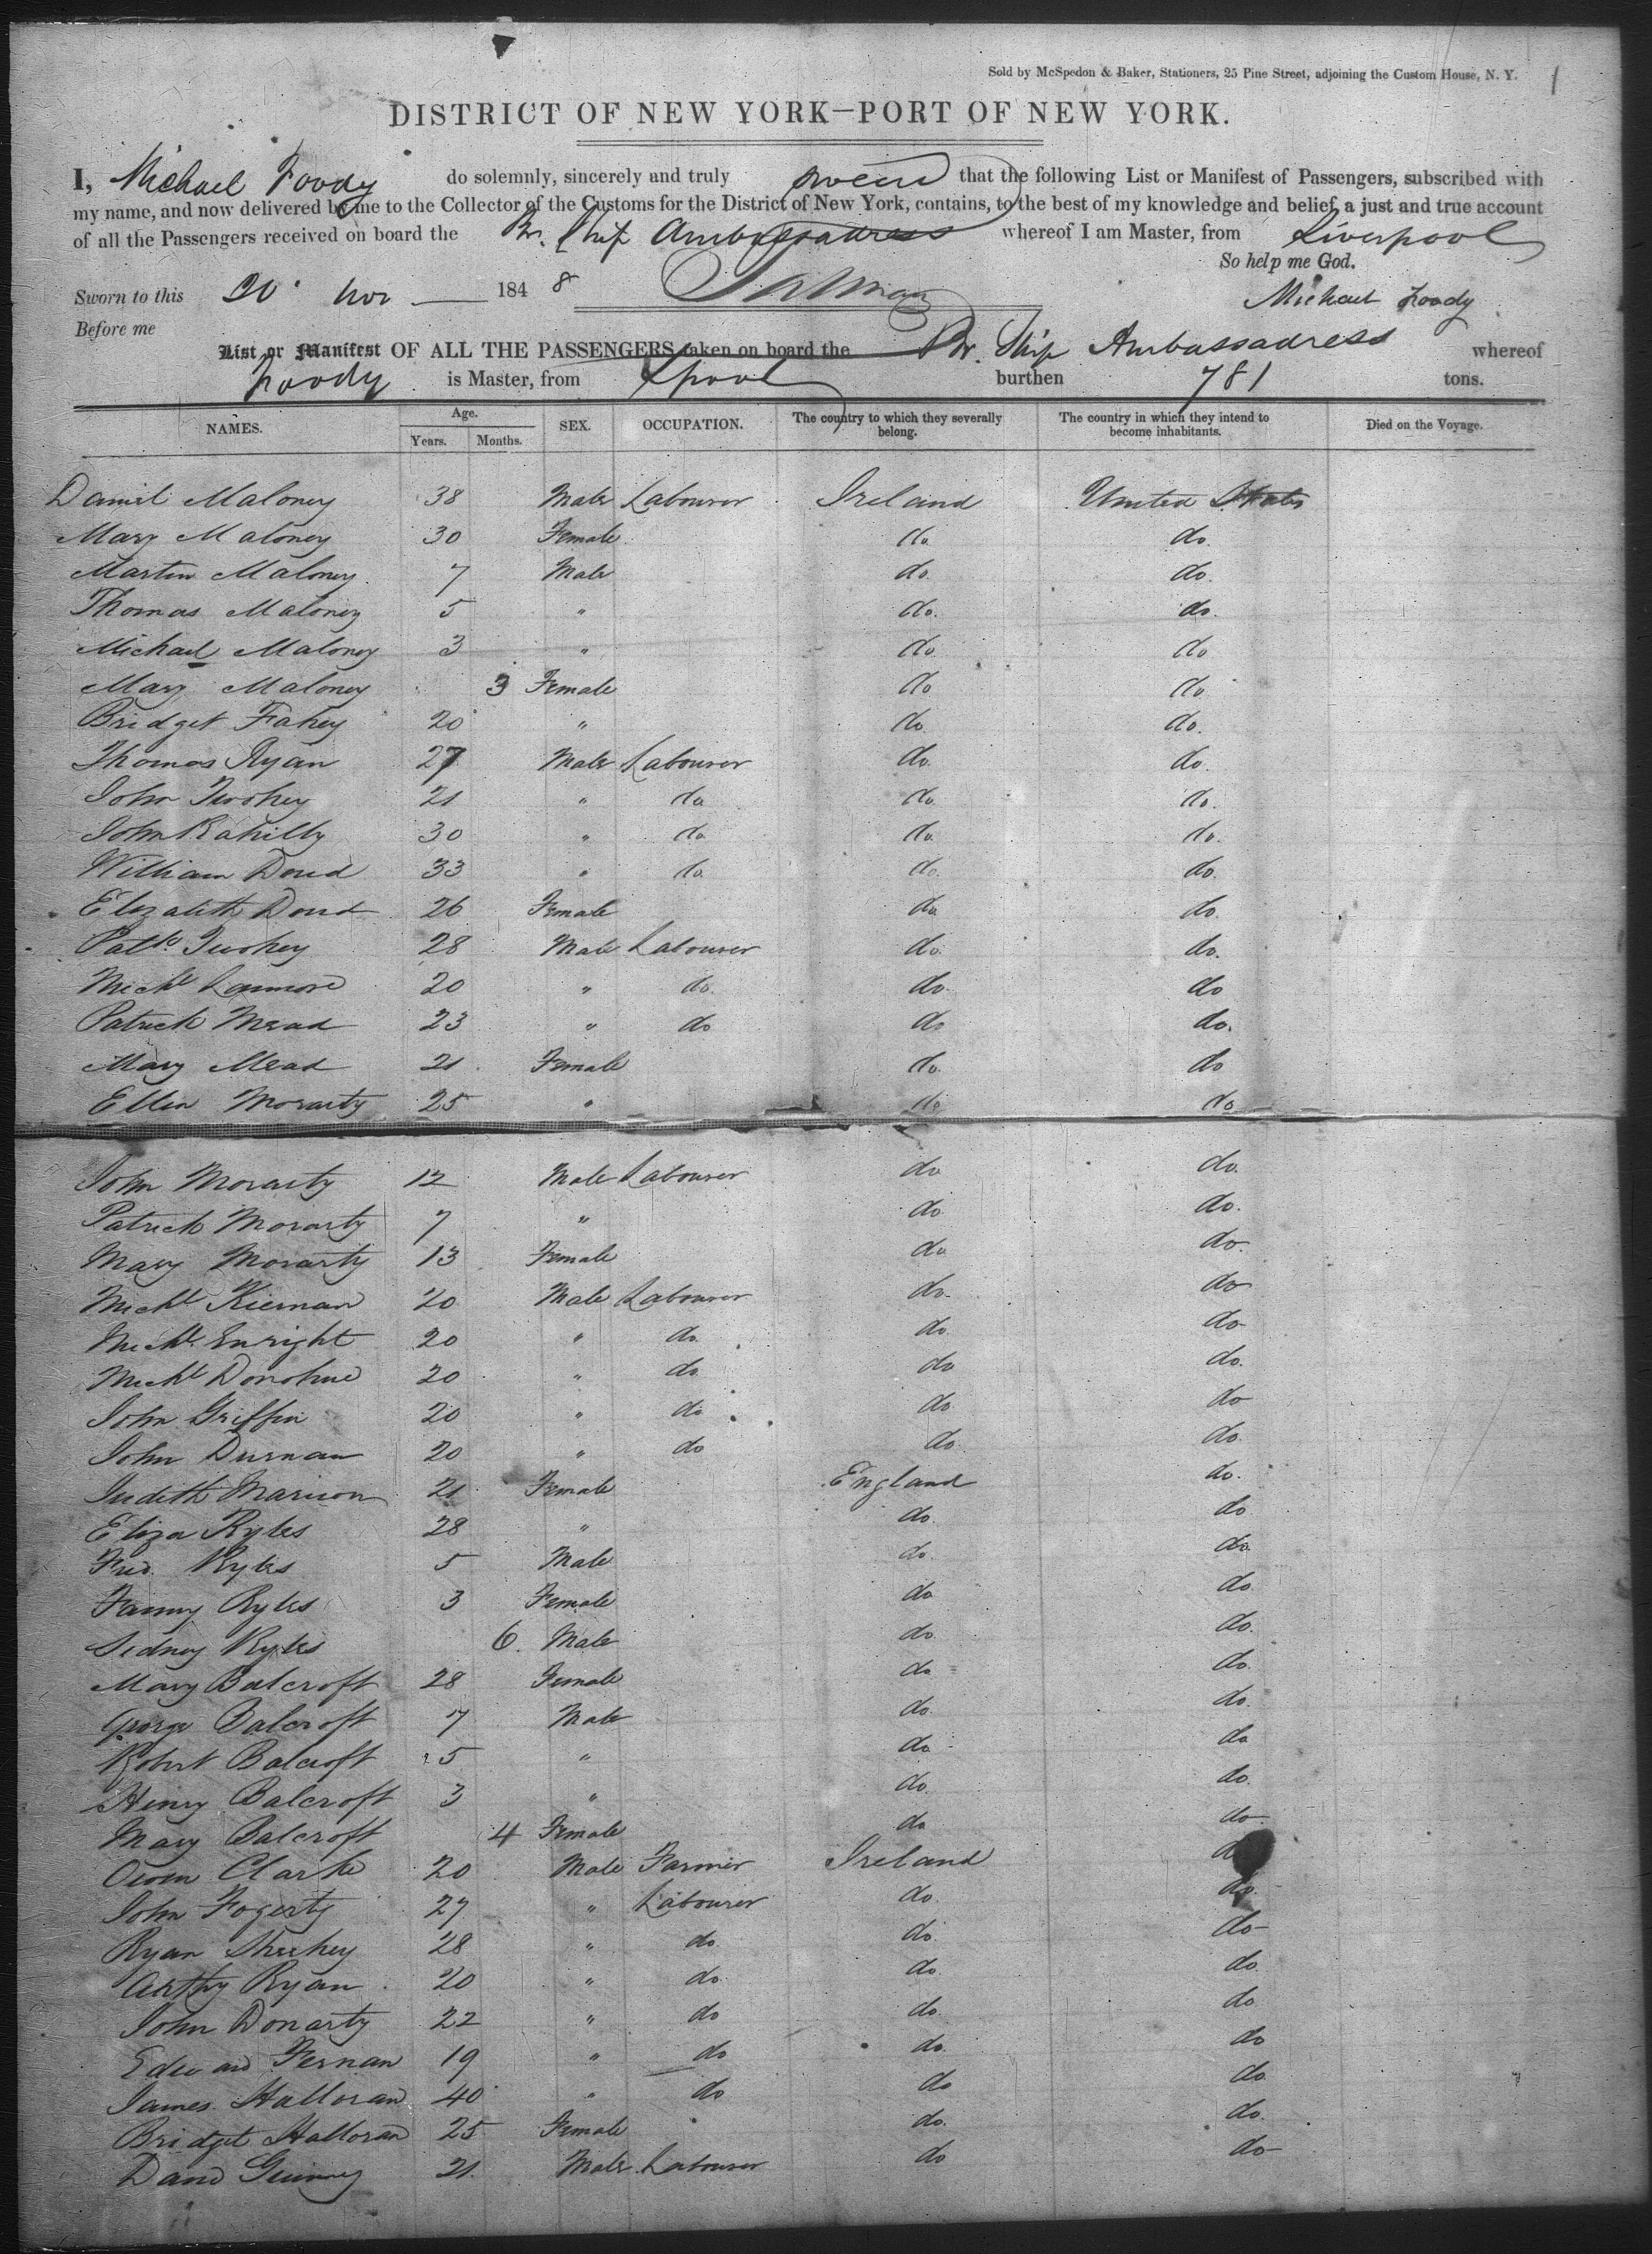 Sold by McSpedon & Baker, Stationers, 25 Pine Street, adjoining the Custom House, N. Y. 1
DISTRICT OF NEW YORK—PORT OF NEW YORK.
I, Michael Foody do solemnly, sincerely and truly swear that the following List or Manifest of Passengers, subscribed with
my name, and now delivered by me to the Collector of the Customs for the District of New York, contains, to the best of my knowledge and belief, a just and true account
of all the Passengers received on board the Br. Ship Ambassadress whereof I am Master, from Liverpool
So help me God.
Sworn to this 20 Nov 1848 Michael Foody
Before me
List or Manifest OF ALL THE PASSENGERS taken on board the Br. Ship Ambassadress whereof
Foody is Master, from Lpool burthen 781 tons.
NAMES. Age. Years. Months. SEX. OCCUPATION. The country to which they severally belong. The country in which they intend to become inhabitants. Died on the Voyage.
Daniel Maloney 38 Male Labourer Ireland United States
Mary Maloney 30 Female do. do.
Martin Maloney 7 Male do. do.
Thomas Maloney 5 " do. do.
Michael Maloney 3 " do. do
Mary Maloney 3 Female do do
Bridget Fahey 20 " do. do.
Thomas Ryan 27 Male Labourer do. do.
John Twohey 21 " do do. do.
John Rahilly 30 " do. do. do.
William Doud 33 " do. do. do.
Elizabeth Doud 26 Female do do.
Patk. Twohey 28 Male Labourer do. do.
Michl Lanmore 20 " do. do. do
Patrick Mead 23 " do do do.
Mary Mead 21 Female do. do
Ellen Morarty 25 " do do
John Morarty 12 Male Labourer do do.
Patrick Morarty 7 " do do.
Mary Morarty 13 Female do do.
Michl Kiernan 20 Male Labourer do. do
Michl. Enright 20 " do. do. do
Michl Donohue 20 " do. do do.
John Griffin 20 " do do do
John Durnan 20 " do do. do.
Judith Marison 21 Female England do.
Eliza Ryles 28 " do. do
Fred. Ryles 5 Male do. do.
Fanny Ryles 3 Female do do
Sidney Ryles 6. Male do. do.
Mary Balcroft 28 Female do do.
George Balcroft 7 Male do. do.
Robert Balcroft 5 " do do
Henry Balcroft 3 " do. do.
Mary Balcroft 4 Female do do
Owen Clarke 20 Male Farmer Ireland do
John Fogerty 27 " Labourer do. do.
Ryan Sheehey 28 " do. do. do
Arthy Ryan 20 " do. do. do
John Donarty 22 " do do. do
Edward Fernan 19 " do do. do
James Halloran 40 " do do do.
Bridget Halloran 25 Female do. do.
David Guinney 21. Male Labourer do do